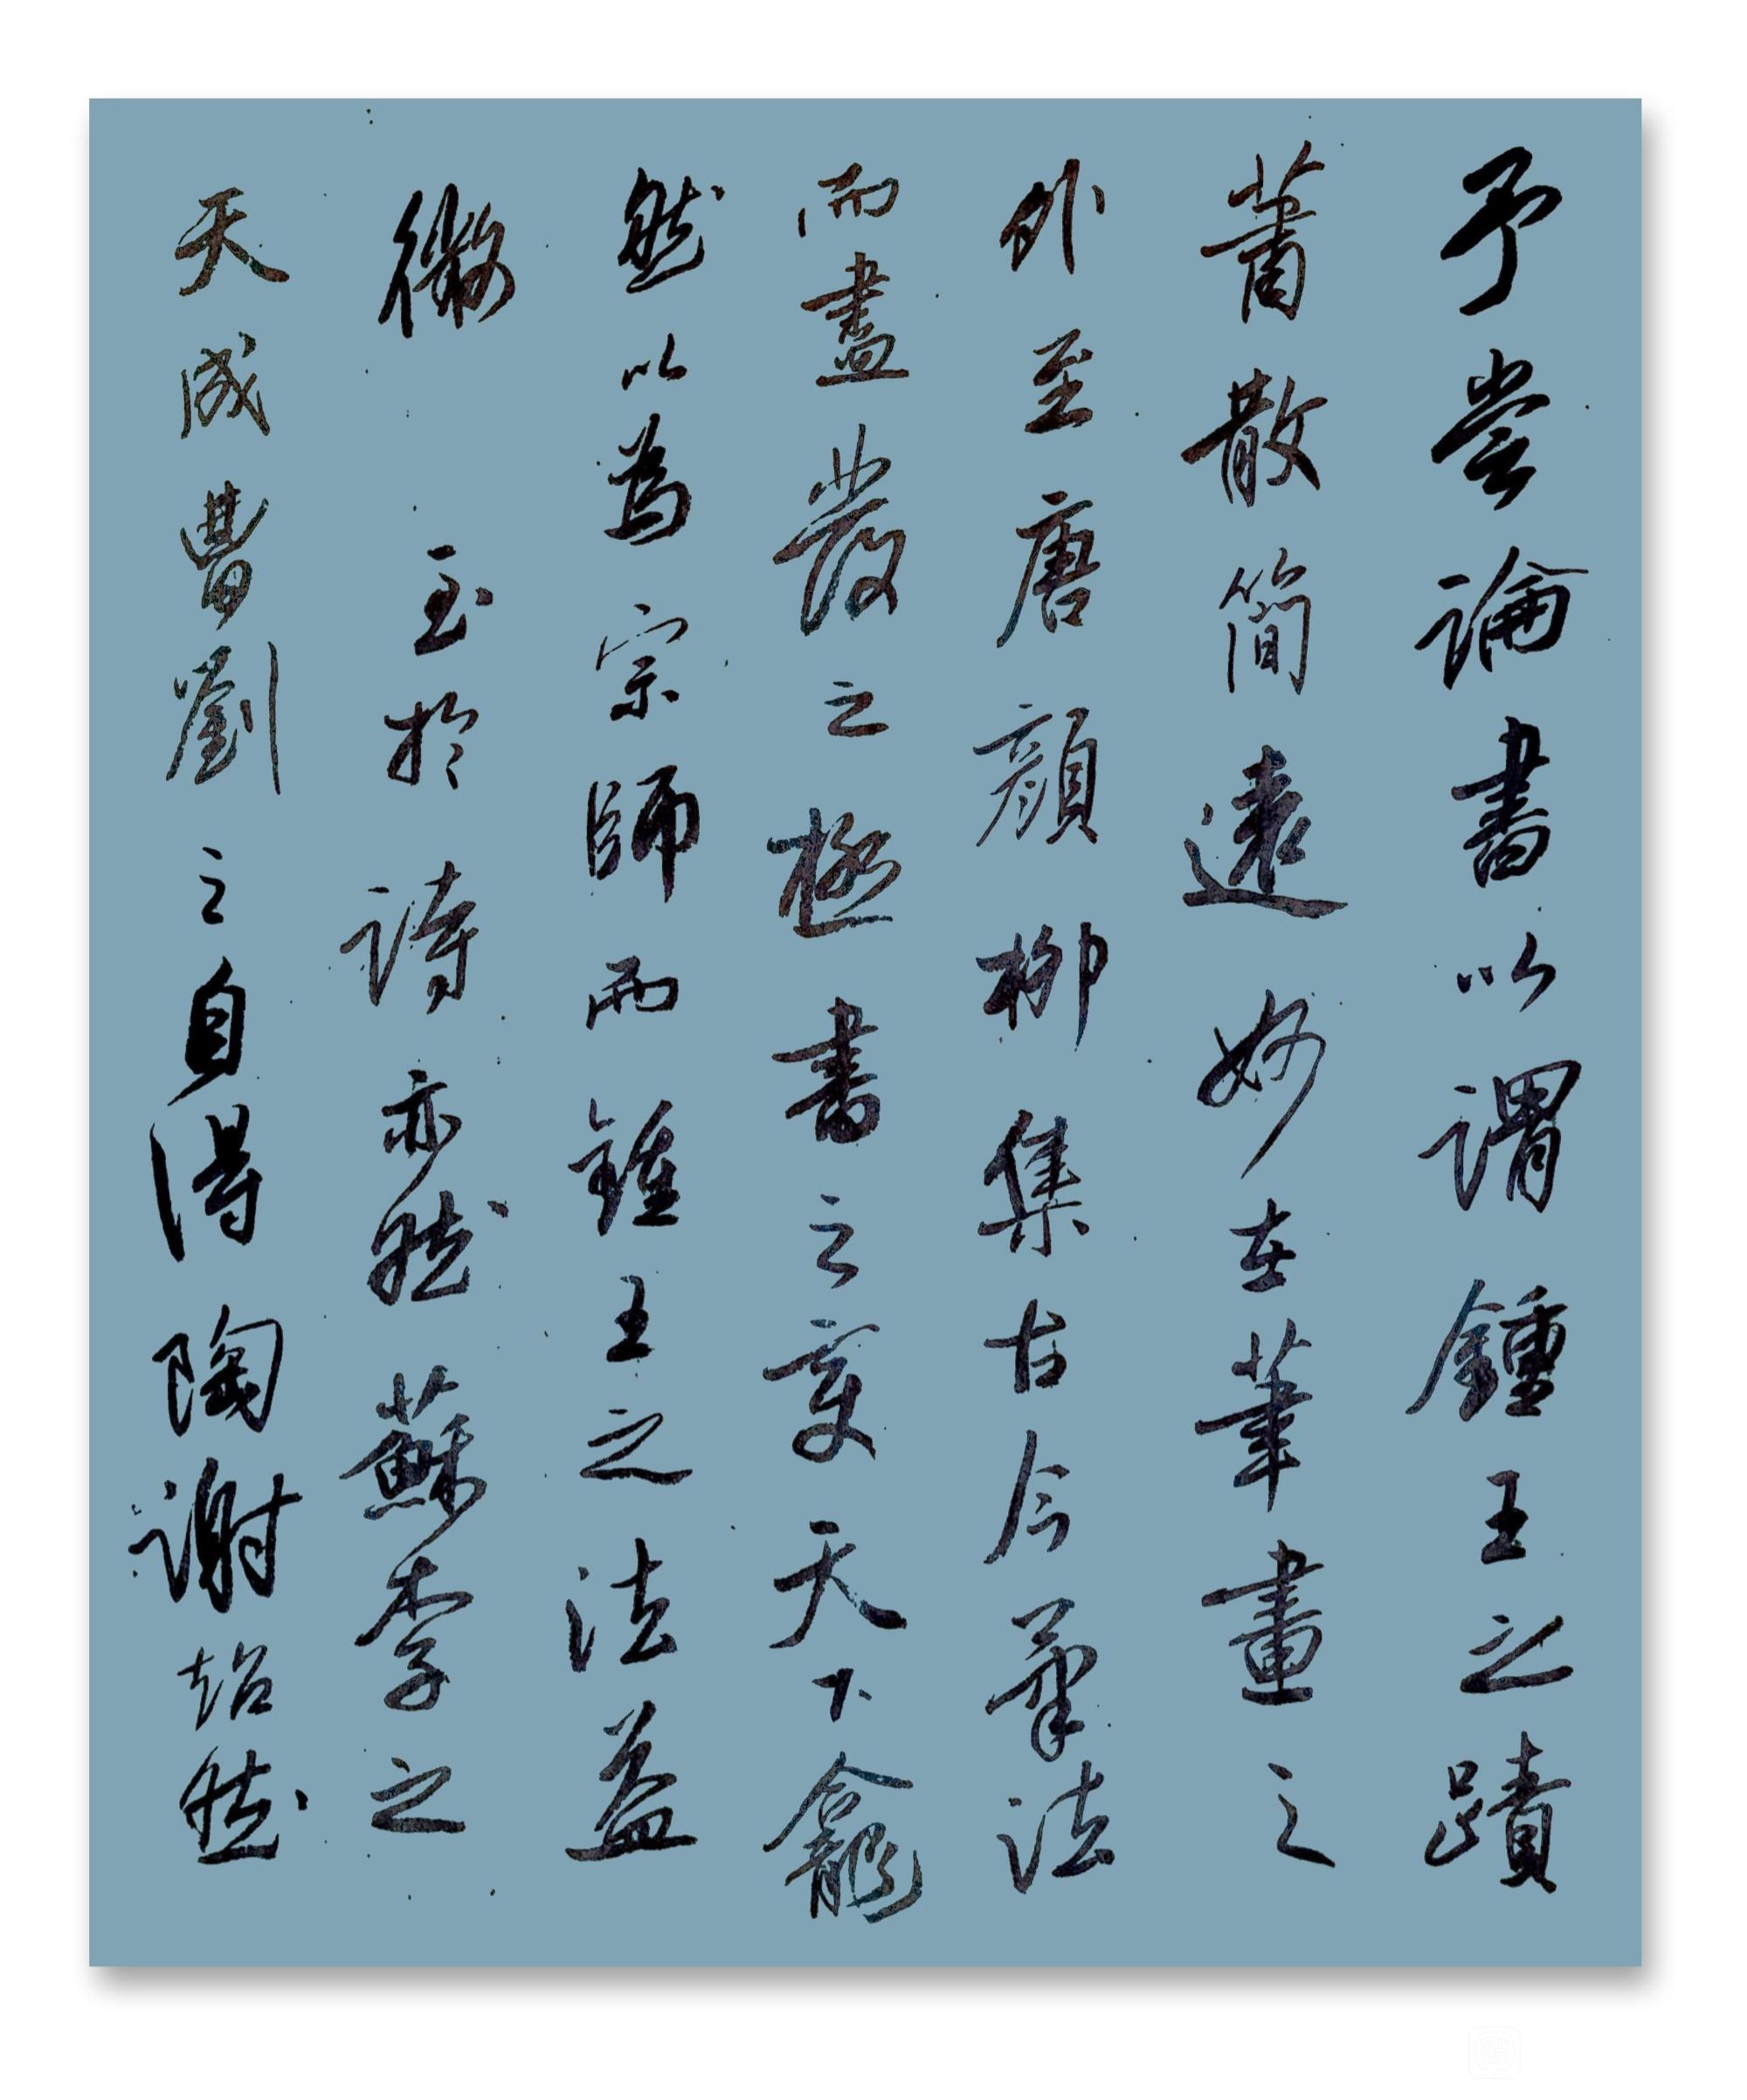 予嘗論書以謂鍾王之蹟
蕭散簡遠妙在筆畫之
外至唐顏柳集古今筆法
而盡發之極書之變天下翕
然以為宗師而鍾王之法益
微至於詩亦然蘇李之
天成曹劉之自得陶謝超然